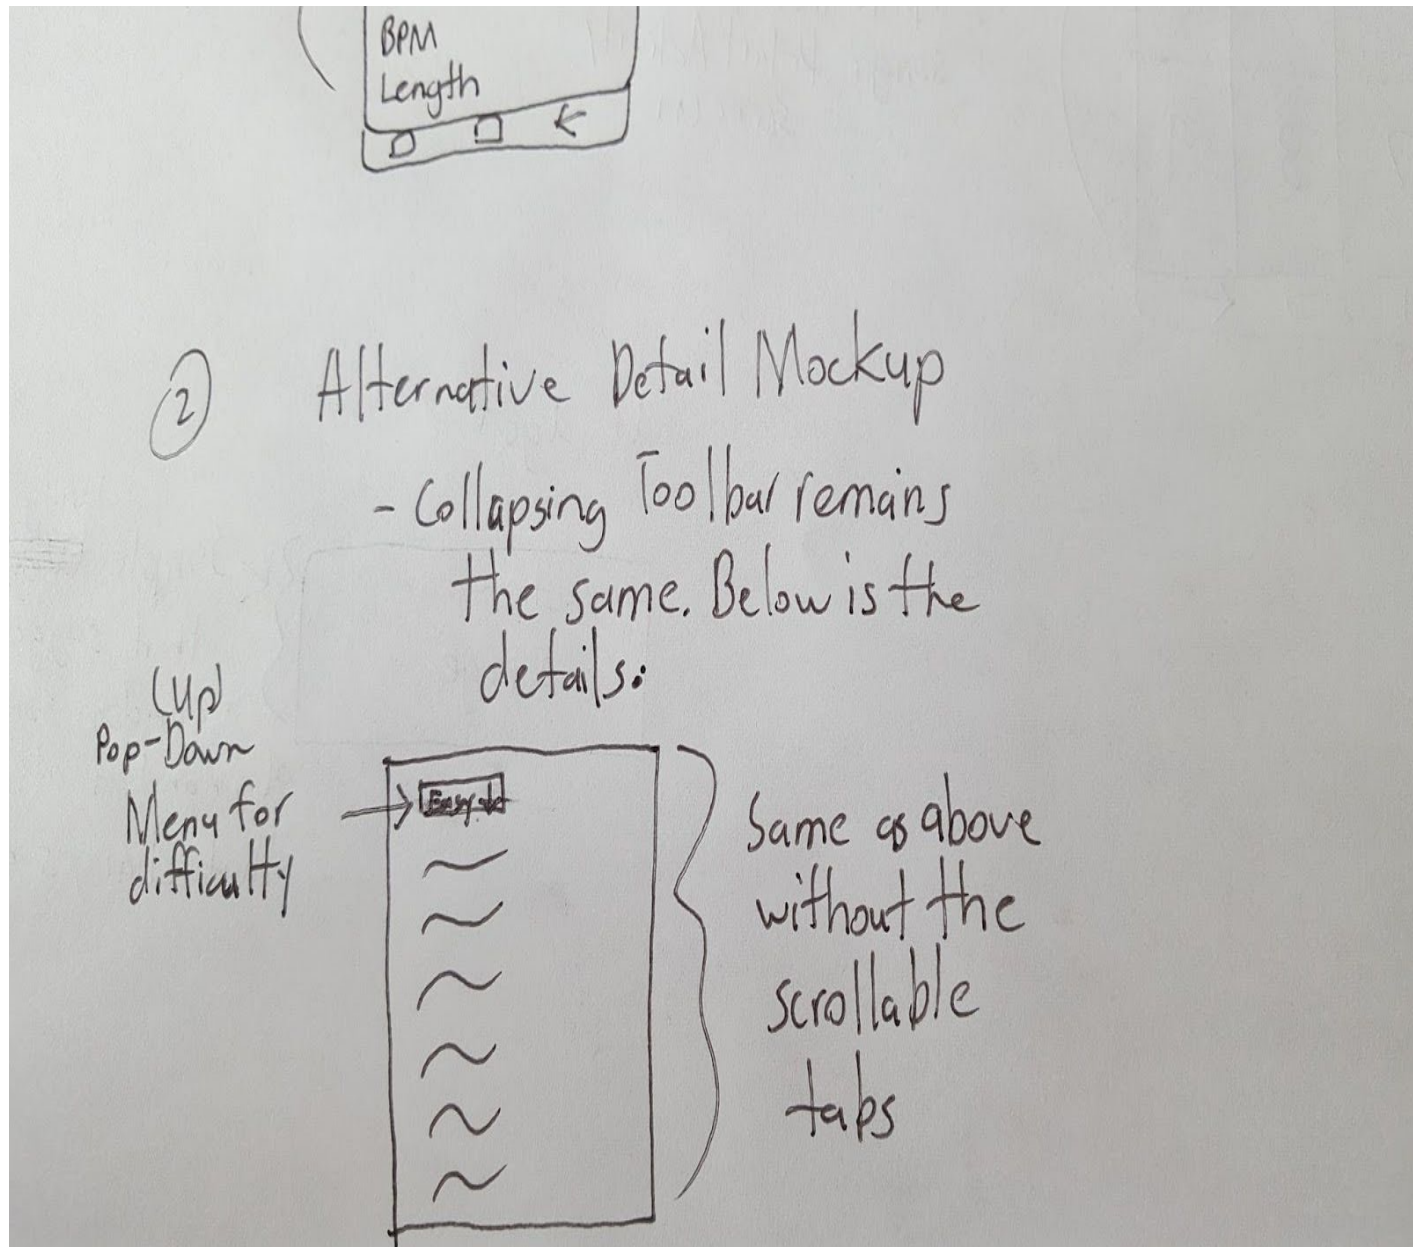 BPM
Length
2 Alternative Detail Mockup
- Collapsing Toolbar remains
the same. Below is the
details:
(Up)
Pop-Down
Menu for
difficulty
Easy
Same as above
without the
scrollable
tabs